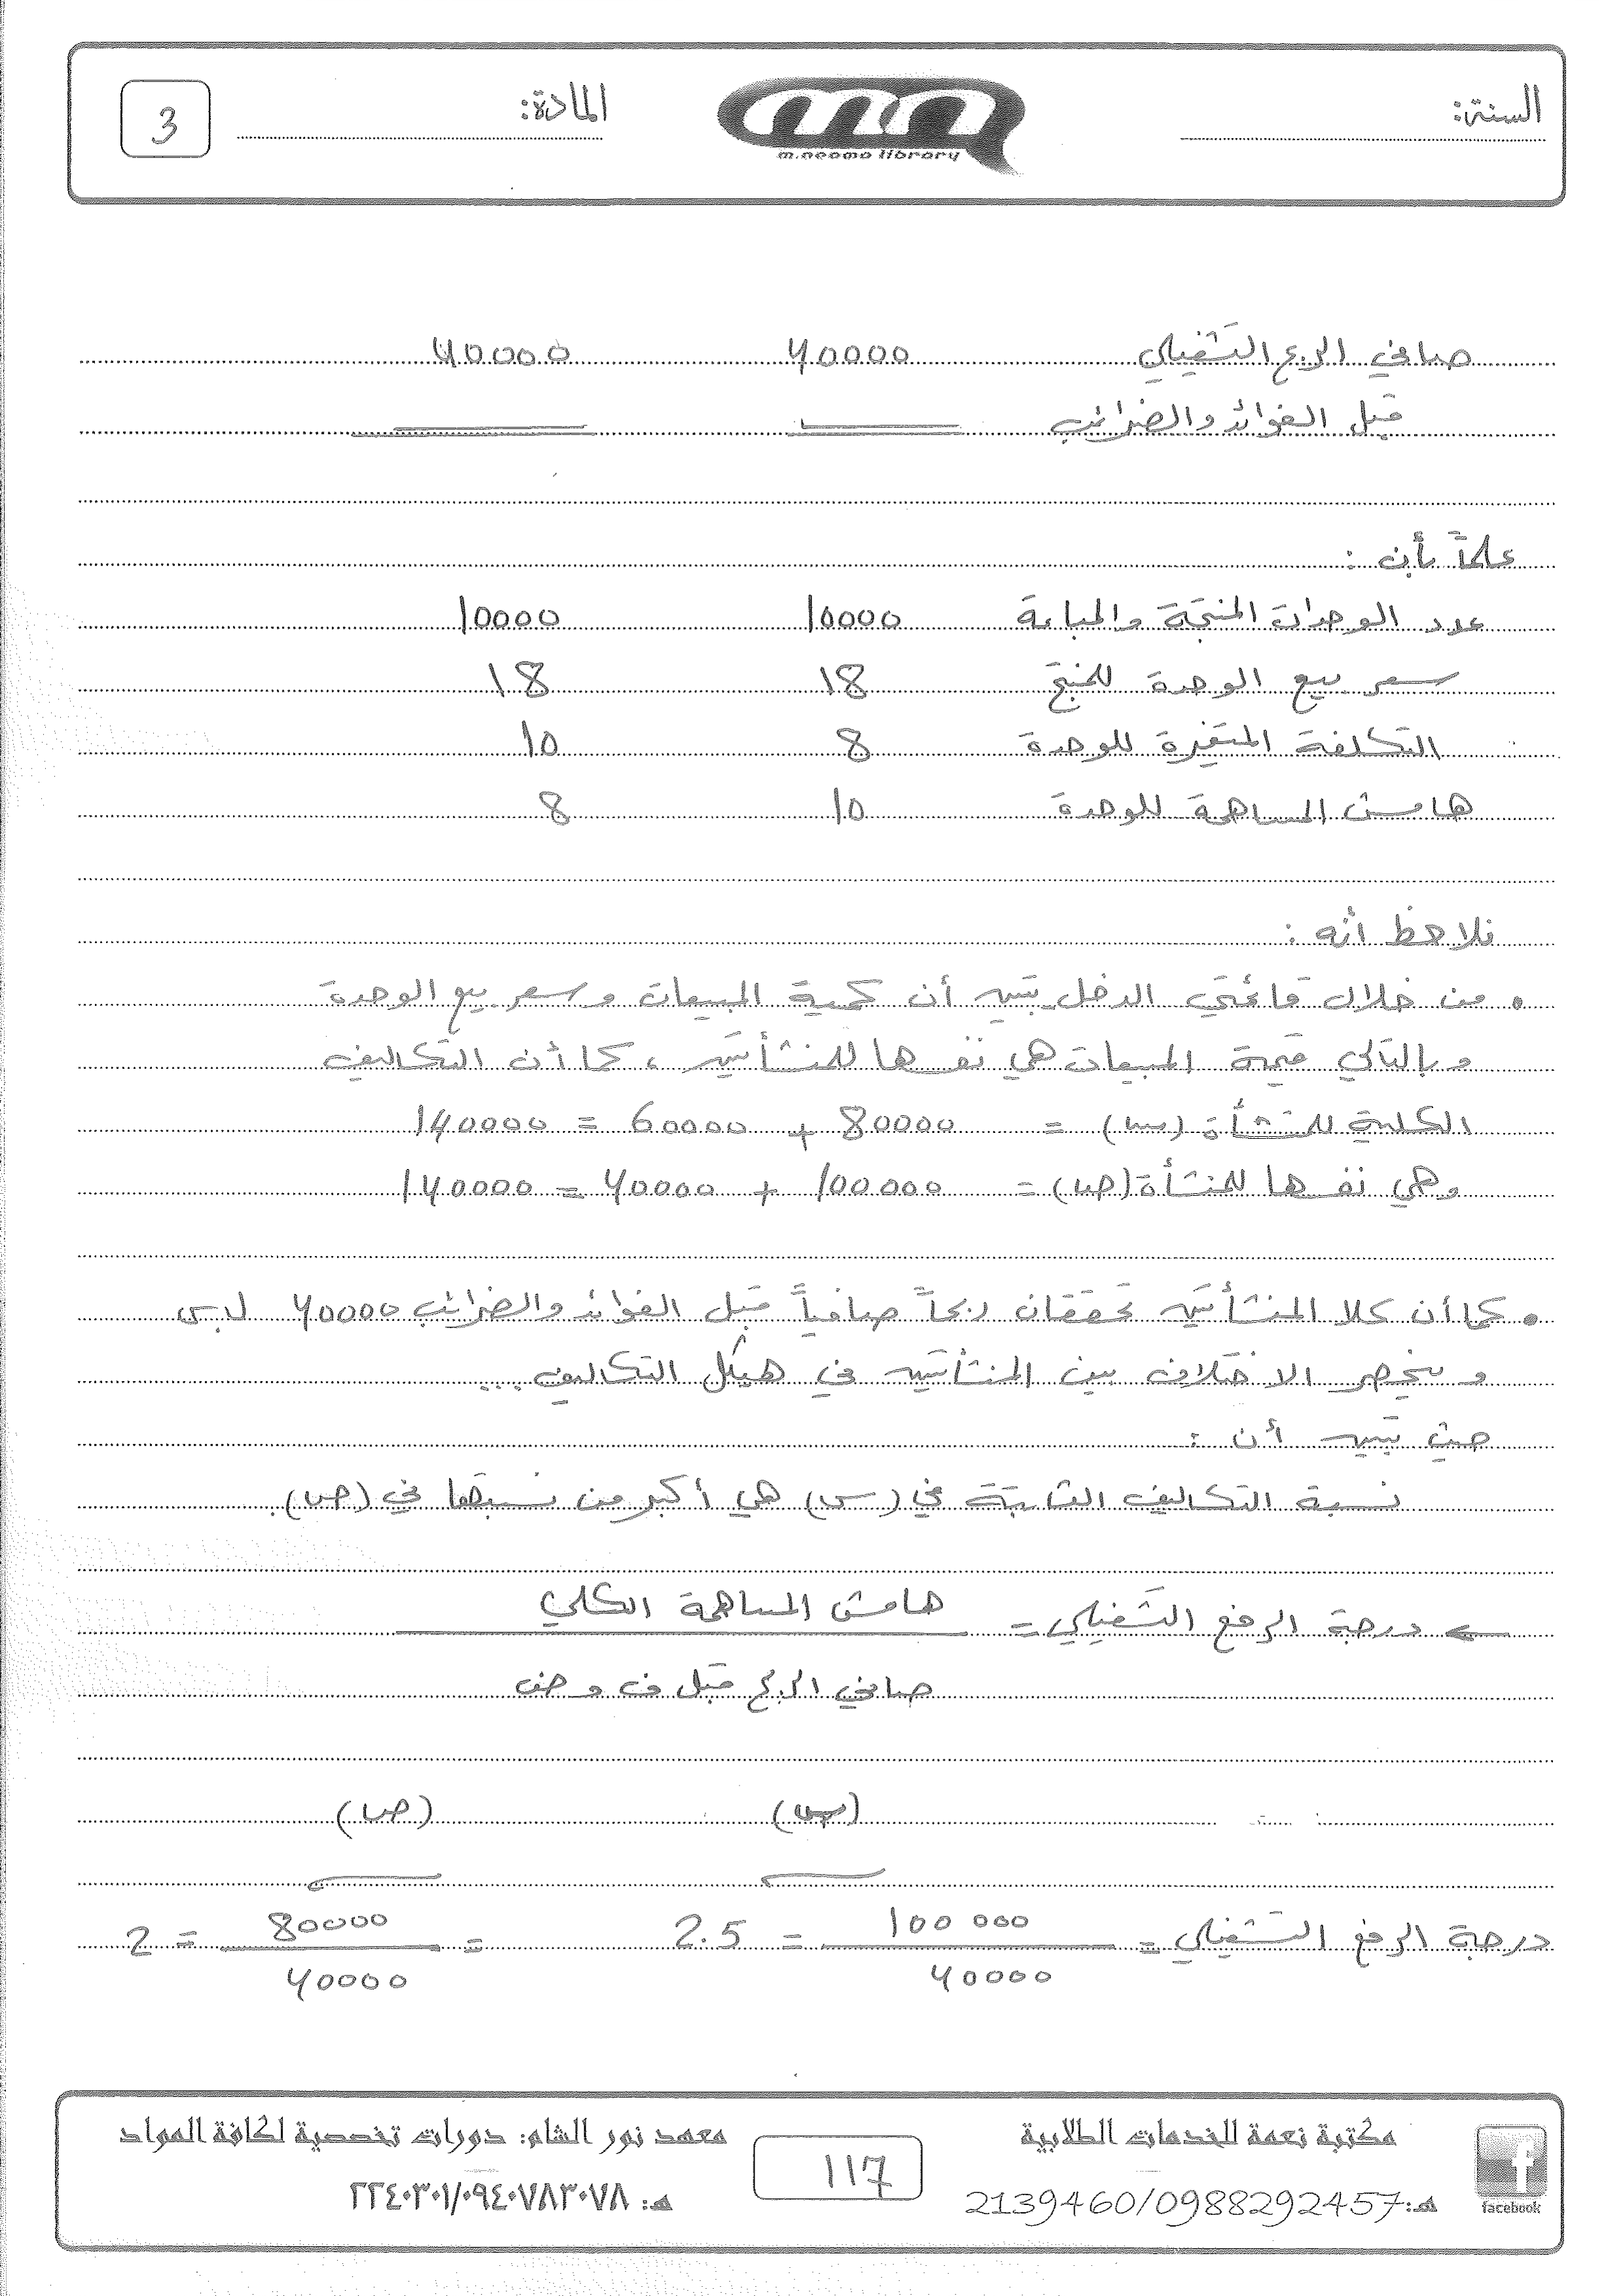 السنة:
m.neama library
المادة:
3
صافي الربح التشغيلي 40000 40000
قبل الفوائد والضرائب
علماً بأن :
عدد الوحدات المنتجة والمباعة 10000 10000
سعر بيع الوحدة للمنتج 18 18
التكلفة المتغيرة للوحدة 8 10
هامش المساهمة للوحدة 10 8
نلاحظ أنه :
• من خلال قائمتي الدخل يتبين أن كمية المبيعات وسعر بيع الوحدة
وبالتالي قيمة المبيعات هي نفسها للمنشأتين ، كما أن التكاليف
الكلية للمنشأة (س) = 80000 + 60000 = 140000
وهي نفسها للمنشأة (ص) = 100000 + 40000 = 140000
• كما أن كلا المنشأتين تحققان ربحاً صافياً قبل الفوائد والضرائب 40000 ل.س
وينحصر الاختلاف بين المنشأتين في هيكل التكاليف...
حيث يتبين أن :
نسبة التكاليف الثابتة في (س) هي أكبر من نسبتها في (ص).
← درجة الرفع التشغيلي = هامش المساهمة الكلي
صافي الربح قبل ف و ض
(س) (ص)
درجة الرفع التشغيلي = 100 000 / 40000 = 2.5 = 80000 / 40000 = 2
facebook
مكتبة نعمة للخدمات الطلابية
هـ:2139460/0988292457
117
معهد نور الشام: دورات تخصصية لكافة المواد
هـ: ٢٢٤٠٣٠١/٠٩٤٠٧٨٣٠٧٨